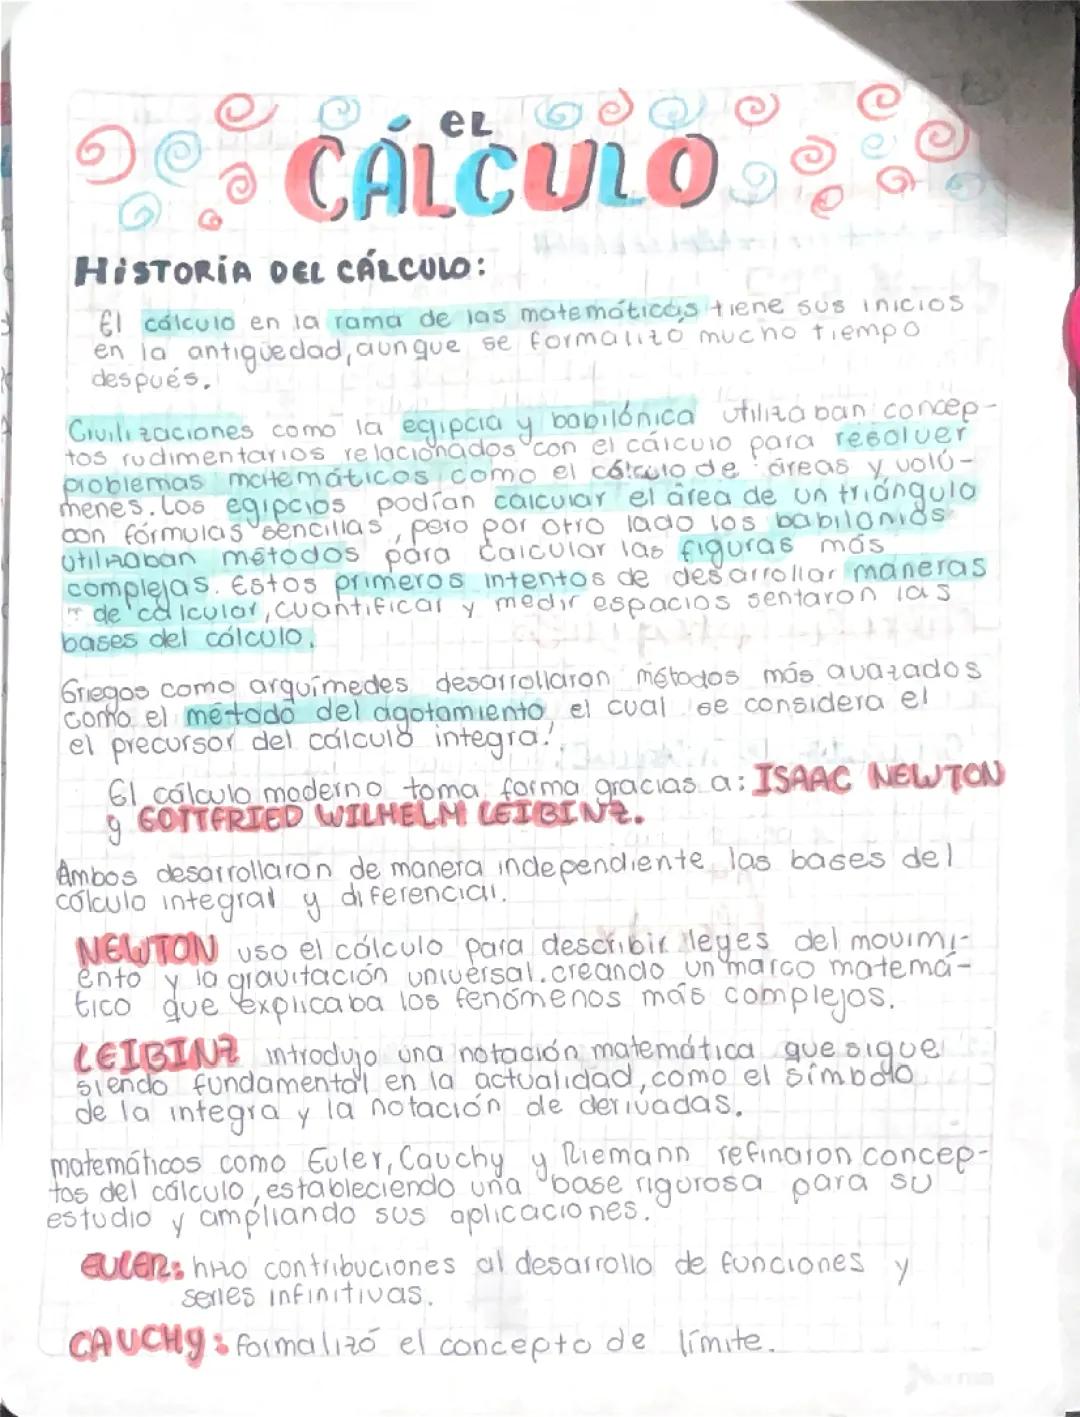 EL
CÁLCULO
HISTORIA DEL CÁLCULO:
El cálculo en la rama de las matemáticas tiene sus inicios
en la antigüedad, aunque se formalizó mucho tiempo
después.
Civilizaciones como la egipcia y babilónica utilizaban concep-
tos rudimentarios relacionados con el cálculo para resolver
problemas matemáticos como el cálculo de áreas y volú-
menes. Los egipcios podían calcular el área de un triángulo
con fórmulas sencillas, pero por otro lado los babilonios
utilizaban métodos para calcular las figuras más
complejas. Estos primeros intentos de desarrollar maneras
de calcular, cuantificar y medir espacios sentaron las
bases del cálculo.
Griegos como arquímedes desarrollaron métodos más avazados
como el método del agotamiento el cual se considera el
el precursor del cálculo integra.
El cálculo moderno toma forma gracias a: ISAAC NEWTON
y GOTTFRIED WILHELM LEIBINZ.
Ambos desarrollaron de manera independiente las bases del
cálculo integral y diferencial.
NEWTON uso el cálculo para describir leyes del movimi-
ento y la gravitación universal. creando un marco matemá-
tico que explicaba los fenómenos más complejos.
LEIBINZ introdujo una notación matemática que sigue
siendo fundamental en la actualidad, como el símbolo
de la integra y la notación de derivadas.
matemáticos como Euler, Cauchy y Riemann refinaron concep-
tos del cálculo, estableciendo una base rigurosa para su
estudio y ampliando sus aplicaciones.
EULER: hizo contribuciones al desarrollo de funciones y
series infinitivas.
CAUCHY: formalizó el concepto de límite.